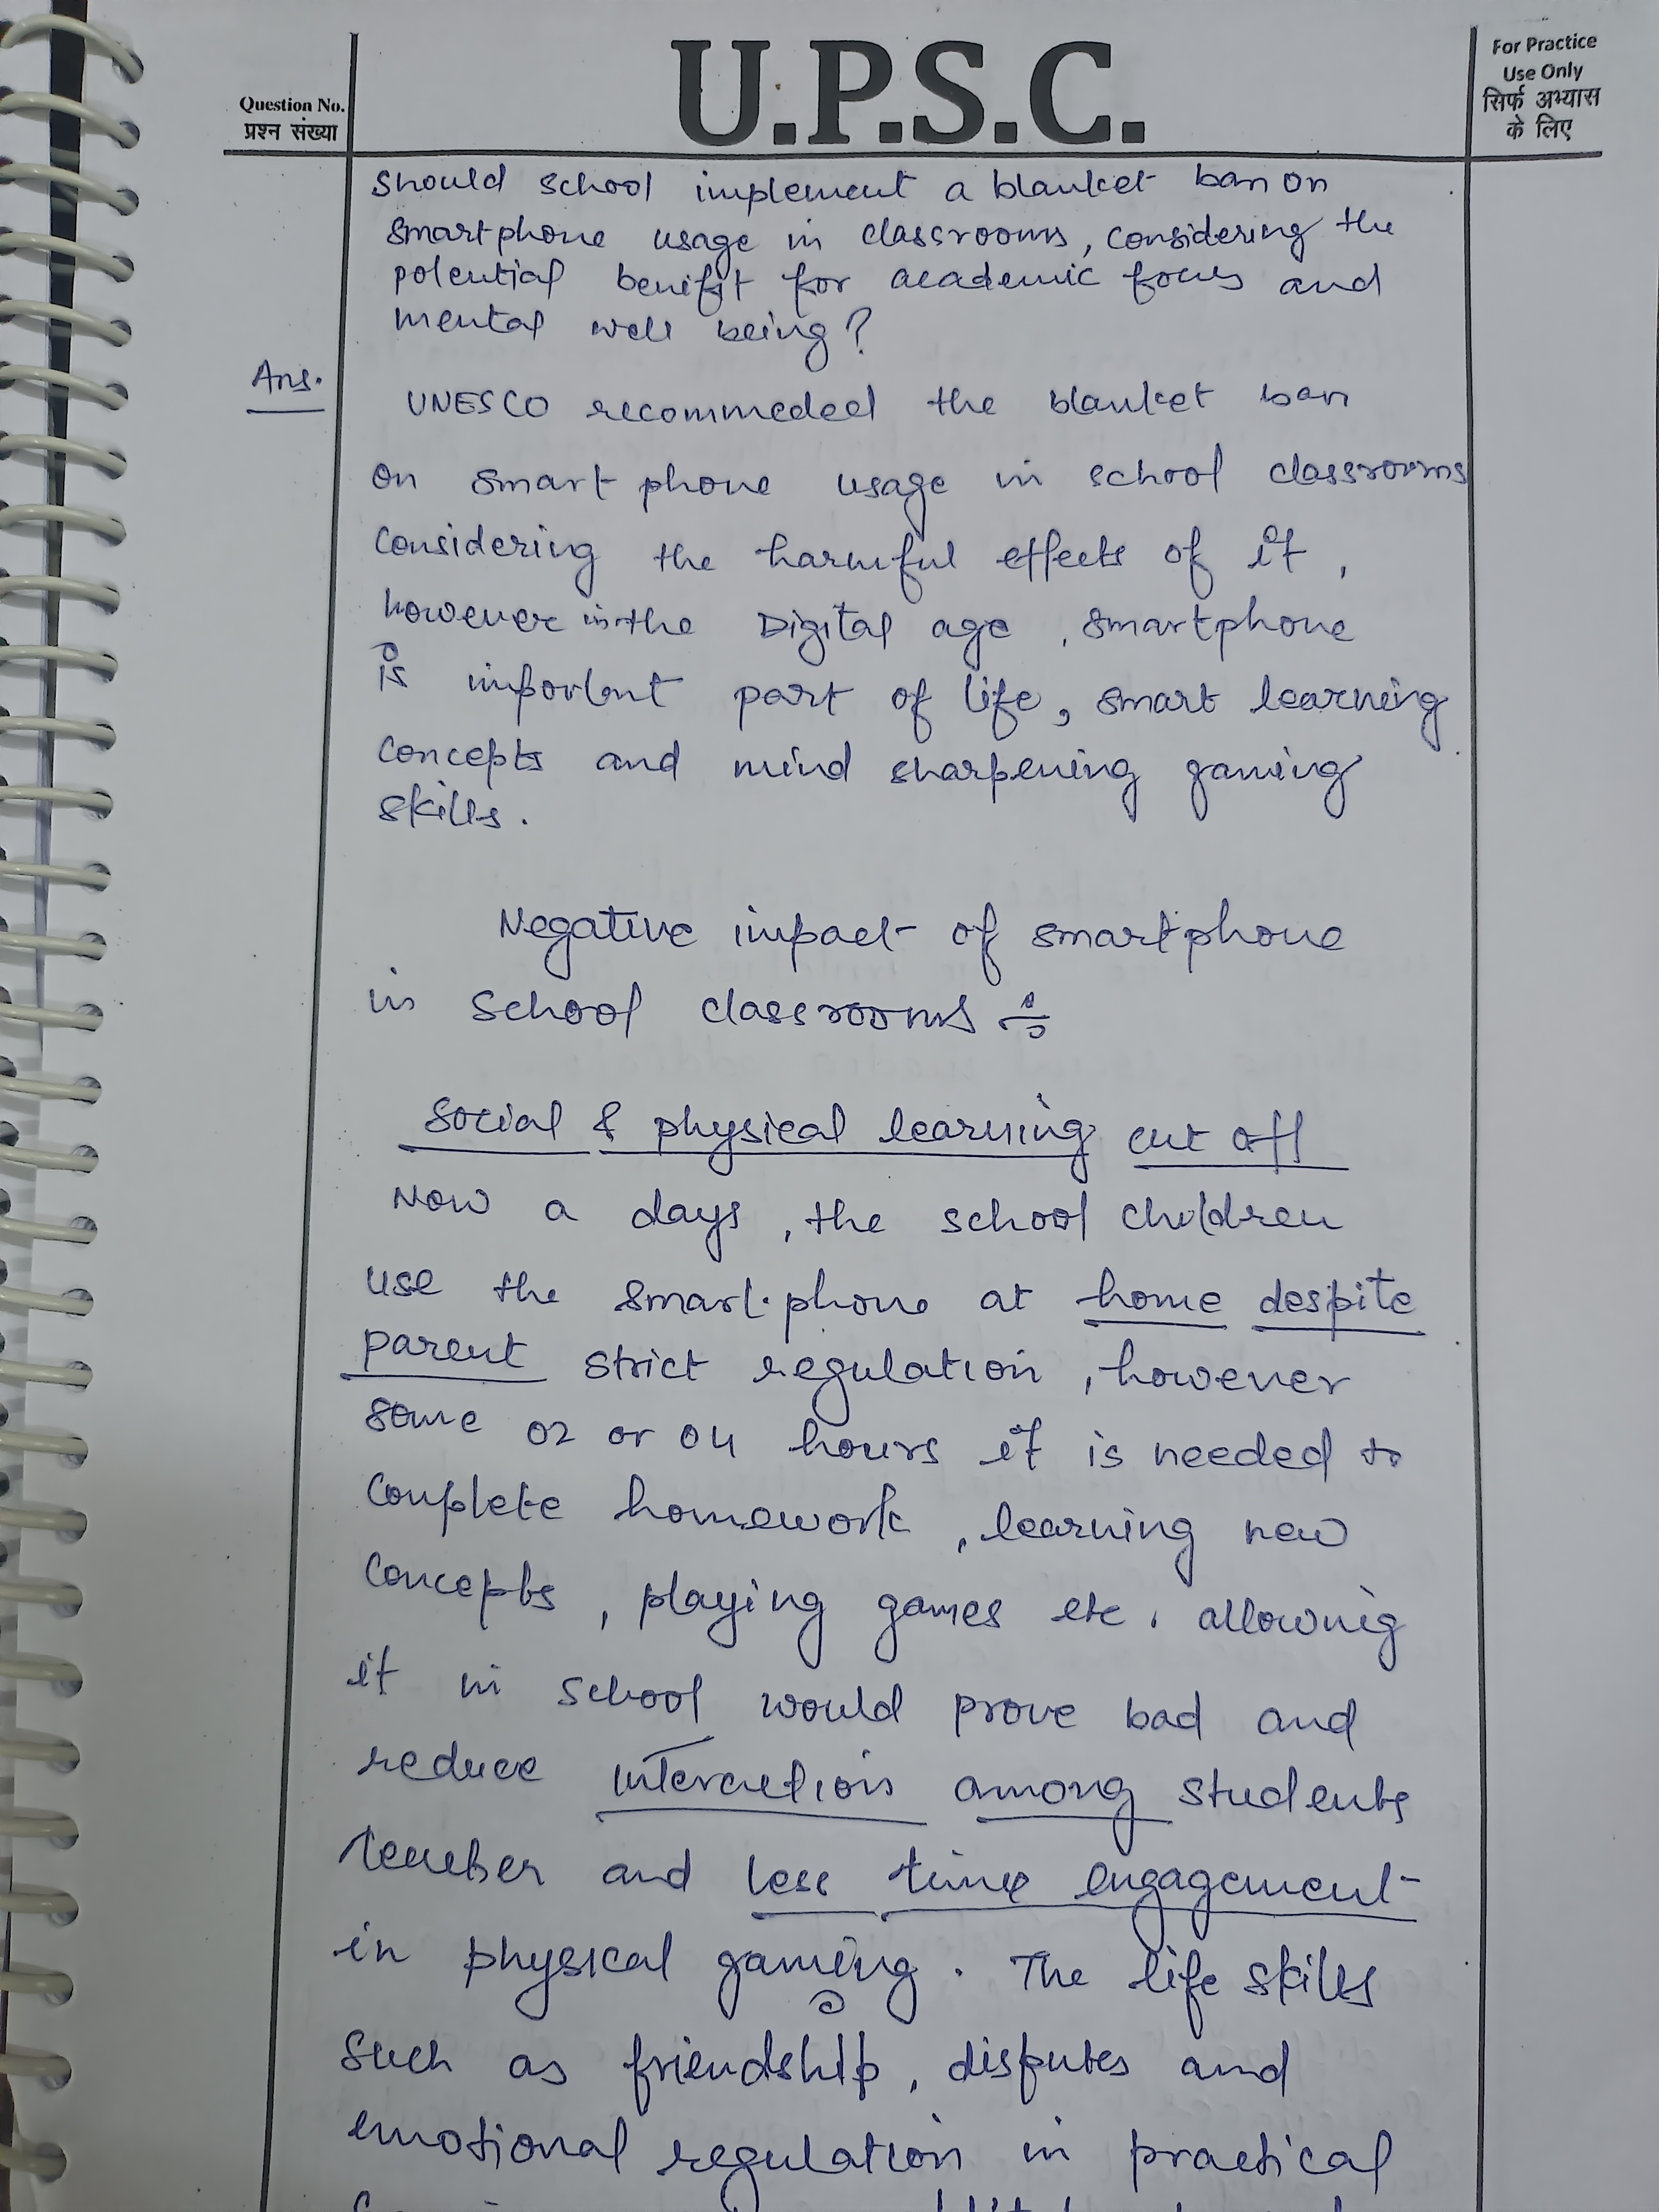 Question No.
प्रश्न संख्या
U.P.S.C.
For Practice
Use Only
सिर्फ अभ्यास
के लिए
Should school implement a blanket ban on
smartphone usage in classrooms, considering the
potential benifit for academic focus and
mental well being?
Ans.
UNESCO recommeded the blanket ban
on smart phone usage in school classrooms
considering the harmful effects of it,
however in the Digital age, smartphone
is important part of life, smart learning
concepts and mind sharpening gaming
skills.
Negative impact of smartphone
in school classrooms :-
Social & physical learning cut off
Now a days, the school children
use the smart phone at home despite
parent strict regulation, however
some 02 or 04 hours it is needed to
complete homework, learning new
concepts, playing games etc. allowing
it in school would prove bad and
reduce interaction among students
teacher and less time engagement
in physical gaming. The life skills
such as friendship, disputes and
emotional regulation in practical